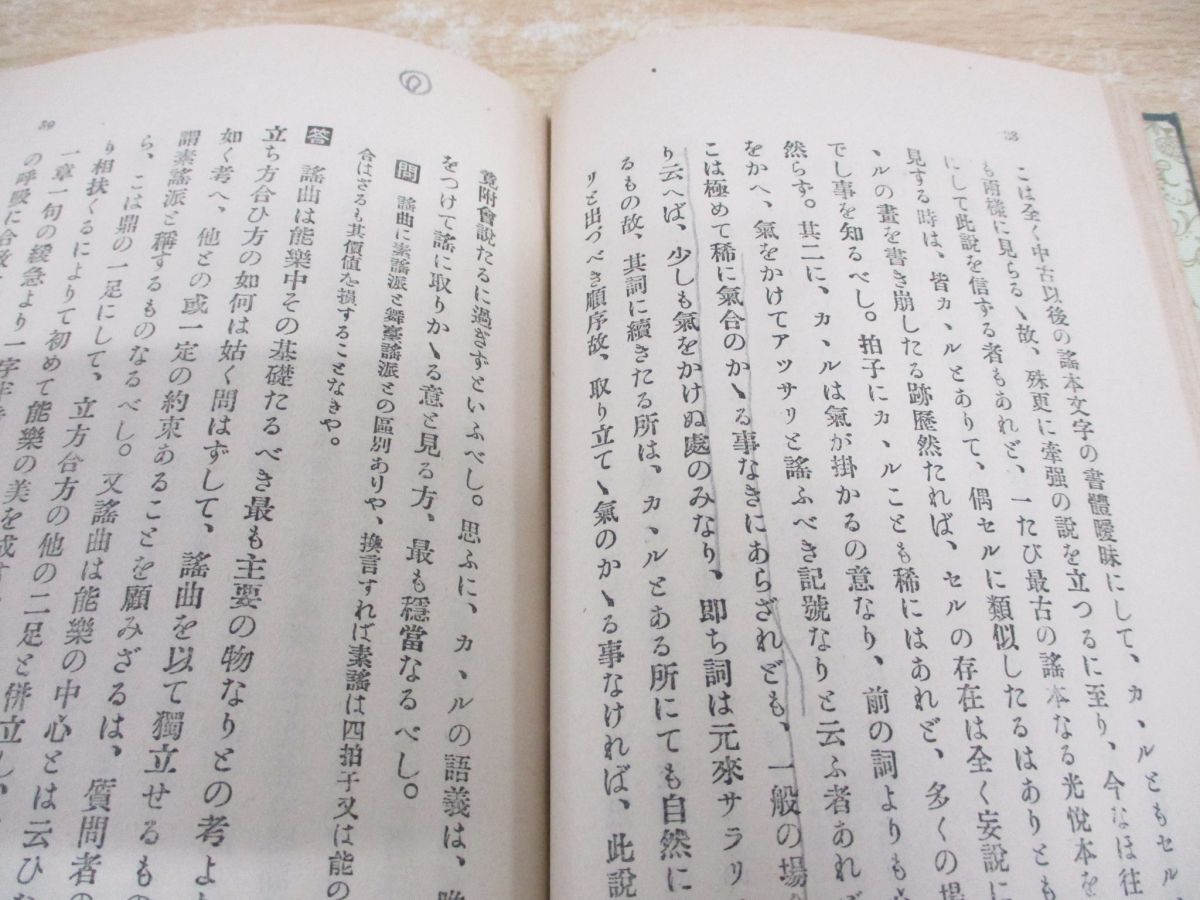 38
こは全く中古以後の謠本文字の書體曖昧にして、カヽルともセル
も兩樣に見らるゝ故、殊更に牽强の說を立つるに至り、今なほ往
にして此說を信する者もあれど、一たび最古の謠本なる光悅本を
見する時は、皆カヽルとありて、偶セルに類似したるはありとも
ヽルの畫を書き崩したる跡歷然たれば、セルの存在は全く妄說に
でし事を知るべし。拍子にカヽルことも稀にはあれど、多くの場
然らす。其二に、カヽルは氣が掛かるの意なり、前の詞よりも
をかへ、氣をかけてアッサリと謠ふべき記號なりと云ふ者あれ
こは極めて稀に氣合のかゝる事なきにあらざれども、一般の場
り云へば、少しも氣をかけぬ處のみなり、卽ち詞は元來サラリ
るもの故、其詞に續きたる所は、カヽルとある所にても自然に
リと出づべき順序故、取り立てゝ氣のかゝる事なければ、此說
39
竟附會說たるに過ぎずといふべし。思ふに、カヽルの語義は、唯
をつけて謠に取りかゝる意と見る方、最も穩當なるべし。
問 謠曲に素謠派と舞臺謠派との區別ありや、換言すれば素謠は四拍子又は能の
合はざるも其價値を損することなきや。
答 謠曲は能樂中その基礎たるべき最も主要の物なりとの考よ
立ち方合ひ方の如何は姑く問はずして、謠曲を以て獨立せるもの
如く考へ、他との或一定の約束あることを顧みざるは、質問者の
謂素謠派と稱するものなるべし。又謠曲は能樂の中心とは云ひ
ら、こは鼎の一足にして、立方合方の他の二足と併立し、
り相扶くるによりて初めて能樂の美を成す
一章一句の緩急より一字半
の呼吸に合致